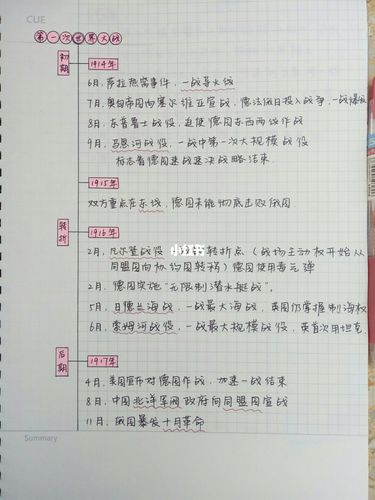 CUE
第一次世界大战
初期
1914年
6月,萨拉热窝事件,一战导火线
7月,奥匈帝国向塞尔维亚宣战,德法俄日投入战争,一战爆发
8月,东普鲁士战役,迫使德国东西两线作战
9月,马恩河战役,一战中第一次大规模战役
标志着德国速战速决战略结束
1915年
双方重点在东线,德国未能彻底击败俄国.
转折
1916年
2月,凡尔登战役 转折点(战场主动权开始从
同盟国向协约国转移)德国使用毒气弹
小红书
2月,德国实施"无限制潜水艇战".
5月,日德兰海战,一战最大海战,英国仍掌握制海权
6月,索姆河战役,一战最大规模战役,英首次用坦克.
后期
1917年
4月,美国宣布对德国作战,加速一战结束
8月,中国北洋军阀政府向同盟国宣战
11月,俄国暴发十月革命
Summary